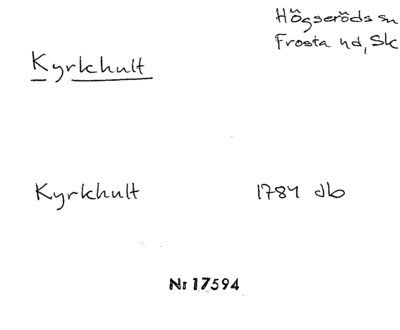 Högseröds sn
Frosta hd, Sk
Kyrkhult
Kyrkhult 1784 db
Nr 17594